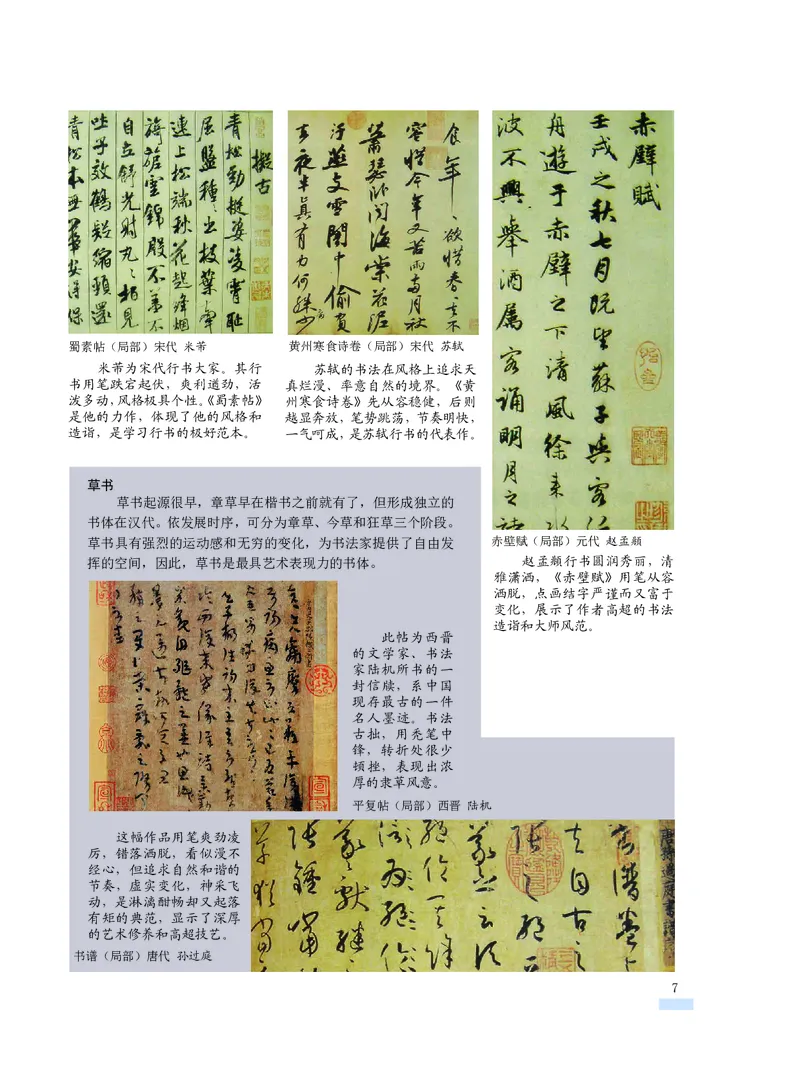 擬古
青松勁挺姿凌霄耻
屈盤種種出枝葉牽
連上松端秋花起絳烟
旖旎雲錦殷不羞不
自立舒光射丸丸柏見
吐子效鶴疑縮頸還
青松本無華安得保
食年年欲惜春春去不
容惜今年又苦雨两月秋
蕭瑟卧聞海棠花泥
汙燕支雪闇中偷負
去夜半真有力何殊少
赤壁賦
壬戌之秋七月既望蘇子與客泛
舟遊于赤壁之下清風徐来水
波不興舉酒属客誦明月之詩
蜀素帖（局部）宋代 米芾
米芾为宋代行书大家。其行
书用笔跌宕起伏，爽利遒劲，活
泼多动，风格极具个性。《蜀素帖》
是他的力作，体现了他的风格和
造诣，是学习行书的极好范本。
黄州寒食诗卷（局部）宋代 苏轼
苏轼的书法在风格上追求天
真烂漫、率意自然的境界。《黄
州寒食诗卷》先从容稳健，后则
越显奔放，笔势跳荡，节奏明快，
一气呵成，是苏轼行书的代表作。
赤壁赋（局部）元代 赵孟頫
赵孟頫行书圆润秀丽，清
雅潇洒，《赤壁赋》用笔从容
洒脱，点画结字严谨而又富于
变化，展示了作者高超的书法
造诣和大师风范。
草书
草书起源很早，章草早在楷书之前就有了，但形成独立的
书体在汉代。依发展时序，可分为章草、今草和狂草三个阶段。
草书具有强烈的运动感和无穷的变化，为书法家提供了自由发
挥的空间，因此，草书是最具艺术表现力的书体。
此帖为西晋
的文学家、书法
家陆机所书的一
封信牍，系中国
现存最古的一件
名人墨迹。书法
古拙，用秃笔中
锋，转折处很少
顿挫，表现出浓
厚的隶草风意。
平复帖（局部）西晋 陆机
这幅作品用笔爽劲凌
厉，错落洒脱，看似漫不
经心，但追求自然和谐的
节奏，虚实变化，神采飞
动，是淋漓酣畅却又起落
有矩的典范，显示了深厚
的艺术修养和高超技艺。
书谱（局部）唐代 孙过庭
7